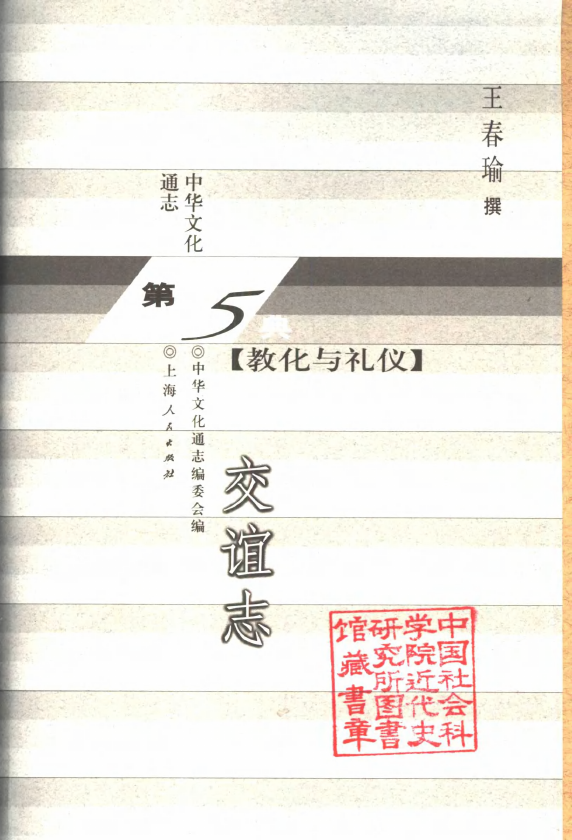 王春瑜 撰
中华文化
通志
第5典
【教化与礼仪】
◎中华文化通志编委会编
◎上海人民出版社
交谊志
中国社会科
学院近代史
研究所图书
馆藏书章